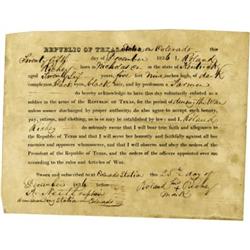 REPUBLIC OF TEXAS, Station on Colorado this
Twenty fifth day of December 1836 I Roland
Richey born in in the State of
aged Twenty six five feet nine inches high, of dark
complexion black eyes, black hair, and by profession a Farmer
do hereby acknowledge to have this day voluntarily enlisted as a
soldier in the army of the REPUBLIC OF TEXAS, for the period of During the War
unless sooner discharged by proper authority; do also agree to accept such
bounty, pay, rations, and clothing as is or may be established by law. And I Roland
Richey do solemnly swear that I will bear true faith and allegiance to the
Republic of Texas, and that I will serve her honestly and faithfully against all her
enemies and opposers whomsoever, and that I will observe and obey the orders of the
President of the Republic of Texas, and the orders of the officers appointed over me
according to the rules and Articles of War.
Sworn and subscribed to at Colorado Station the 25th day of
December 1836
Roland Richey
Station on Colorado
mark